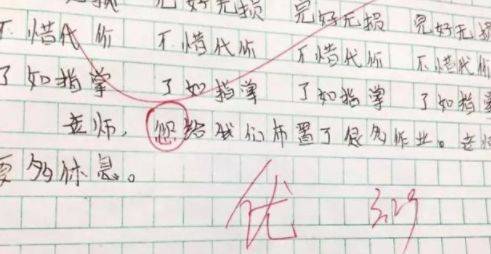 完好无损 完好无损 完好无损
不惜代价 不惜代价 不惜代价 不惜代价
了如指掌 了如指掌 了如指掌 了如指掌
老师，您给我们布置了很多作业。老师
要多休息。
优 3.29